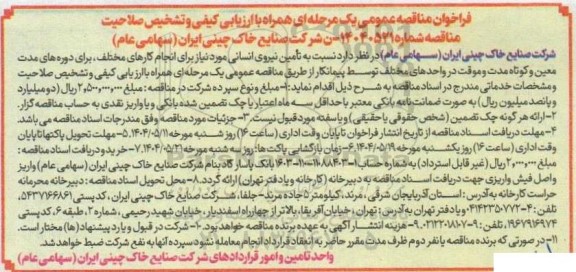 فراخوان مناقصه عمومی یک مرحله ای همراه با ارزیابی کیفی و تشخیص صلاحیت
مناقصه شماره ۱۴۰۴۰۵۲۱-ن شرکت صنایع خاک چینی ایران (سهامی عام)
شرکت صنایع خاک چینی ایران (سهامی عام) در نظر دارد نسبت به تأمین نیروی انسانی مورد نیاز برای انجام کارهای مختلف، برای دوره های مدت
معین و کوتاه مدت و موقت در واحدهای مختلف توسط پیمانکار از طریق مناقصه عمومی یک مرحله ای همراه باارزیابی کیفی و تشخیص صلاحیت
و مشخصات خدماتی مندرج در اسناد مناقصه به شرح ذیل اقدام نماید: ۱- مبلغ و نوع سپرده شرکت در مناقصه: مبلغ ۲٫۵۰۰٫۰۰۰٫۰۰۰ ریال (دو میلیارد
و پانصد میلیون ریال) به صورت ضمانت نامه بانکی معتبر با حداقل سه ماه اعتبار یا چک تضمین شده بانکی و یا واریز نقدی به حساب مناقصه گزار.
۲- ارائه هر گونه چک تضمین (شخص حقوقی یا حقیقی) و یا سفته مورد قبول نیست. ۳- جزئیات مورد مناقصه وفق مندرجات اسناد مناقصه می باشد.
۴- مهلت دریافت اسناد مناقصه از تاریخ انتشار فراخوان تا پایان وقت اداری (ساعت ۱۶) روز شنبه مورخه ۱۴۰۴/۰۵/۱۱. ۵- مهلت تحویل پاکتها تا پایان
وقت اداری (ساعت ۱۶) روز یکشنبه مورخه ۱۴۰۴/۰۵/۱۹. ۶- زمان بازگشایی پاکت ها: روز سه شنبه مورخه ۱۴۰۴/۰۵/۲۱. ۷- خرید و دریافت اسناد مناقصه:
مبلغ ۲٫۰۰۰٫۰۰۰ ریال (غیر قابل استرداد) به شماره حساب بانک پاسارگاد بنام شرکت صنایع خاک چینی ایران (سهامی عام) واریز و
واصل فیش واریزی جهت دریافت اسناد مناقصه به دبیرخانه (کارخانه و یا دفتر تهران) ارائه گردد. ۸- محل تحویل اسناد مناقصه: دبیرخانه محرمانه
حراست کارخانه به آدرس: استان آذربایجان شرقی، مرند، کیلومتر ۵ جاده مرند-جلفا، شرکت صنایع خاک چینی ایران، کدپستی ۵۴۳۷۱۶۶۸۶۱،
تلفن: ۴-۰۴۱۴۲۳۵۰۷۷۲ و یا دفتر تهران به آدرس: تهران، خیابان آفریقا، بالاتر از چهارراه اسفندیار، خیابان شهید رحیمی، شماره ۲، طبقه ۶، کدپستی
۱۹۶۷۹۱۶۹۷۴، تلفن: ۷-۰۲۱۲۲۰۱۸۱۰۷. ۹- هزینه انتشار آگهی به عهده برنده مناقصه خواهد بود. ۱۰- شرکت در قبول و یا رد پیشنهاد (ها) مختار است.
۱۱- در صورتی که برنده مناقصه یا نفر دوم ظرف مدت مقرر حاضر به انعقاد قرارداد انجام معامله نشود سپرده آنها به نفع شرکت ضبط خواهد شد.
واحد تامین و امور قراردادهای شرکت صنایع خاک چینی ایران (سهامی عام)